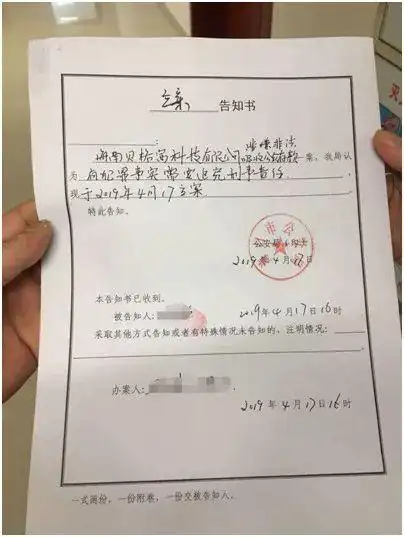 立案 告知书
涉嫌非法
海南贝格富科技有限公司吸收公存款 案,我局认
为 有犯罪事实需要追究刑事责任,
现于2019年4月17立案
特此告知。
2019年4月17日
本告知书已收到。
被告知人: 2019年4月17日16时
采取其他方式告知或者有特殊情况未告知的,注明情况:
办案人:
2019年4月17日16时
一式两份,一份附卷,一份交被告知人。